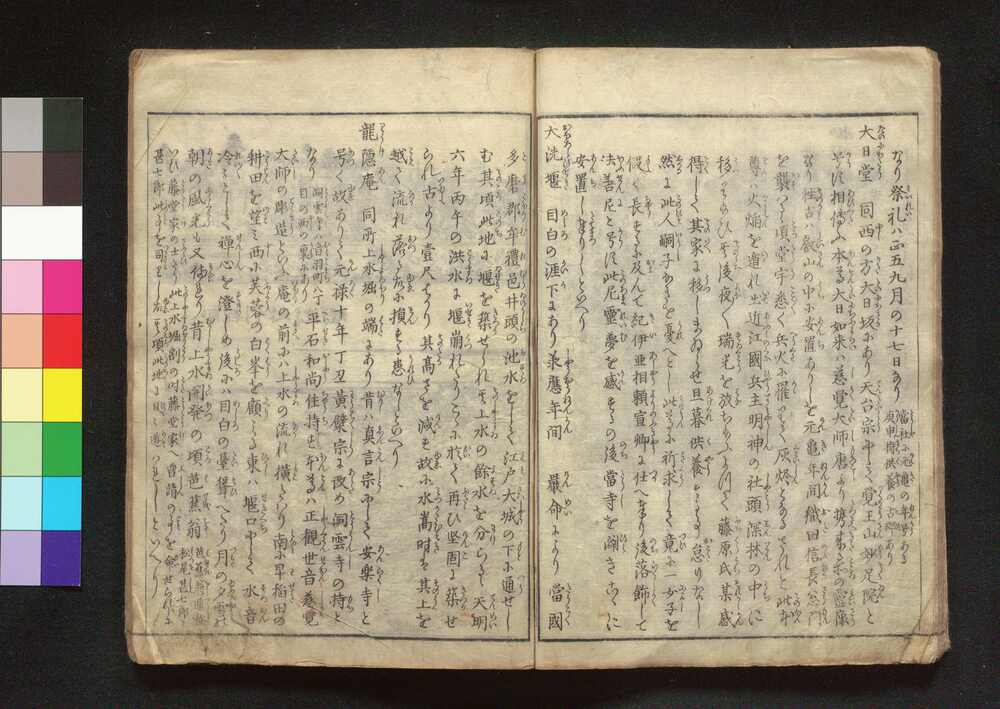 なり祭礼ハ正五九月の十七日なり
大日堂 同西の方大日坂にあり天台宗にして覚王山妙足院と
号す相傳ふ本尊大日如来ハ慈覚大師唐より携来の霊像
なり往古ハ叡山の中に安置ありしを元亀年間織田信長
を襲ふの頃堂宇悉く兵火に罹りて灰燼となるされと此本
尊ハ火焔を遁れ出近江國兵主明神の社頭深林の中に
移りたまひ夜々瑞光を放ちたまふ 藤原氏某感
得して其家に移しまゐらせ旦暮供養 怠りなし
然に此人嗣子なきを憂へとし此本尊に祈求して竟に一女子を
長するに及んて紀伊亜相頼宣卿に仕へ後落飾して
法善尼と号す此尼霊夢を感するの後當寺を闢きこゝに
安置しまゐらせしといへり
大洗堰 目白の涯下にあり承應年間 嚴命により當國
多磨郡牟禮邑井頭の池水をして江戸大城の下に通せし
む其頃此地に堰を築せられ上水の餘水を分らる天明
六年丙午の洪水に堰崩れたりしに依て再ひ堅固に築せ
られ古より壹尺はかり其高さを減す故に水嵩時ハ其上を
越て流れ落る故に損する患なしといへり
龍隠庵 同所上水堀の端にあり昔ハ真言宗にして安楽寺と
号く故ありて元禄十年丁丑黄檗宗に改め洞雲寺の持と
なり 洞雲寺ハ音羽町八丁目の西の裏にあり 平石和尚住持す本尊ハ正觀世音慈覚
大師の彫造といふ庵の前にハ上水の流れ横たハり南に早稲田の
耕田を望ミ西に芙蓉の白峯を顧ミる東ハ堰口にして水音
冷々として禅心を澄しめ後にハ目白の臺聳へたり月の夕雪の
朝の風光も又備れり昔上水開発の頃芭蕉翁
藤堂家の士 此上水堀割の時藤堂家へ普請の事を命せられに
甚七郎此事を司る 其頃此地に日々遊ハれしといへり